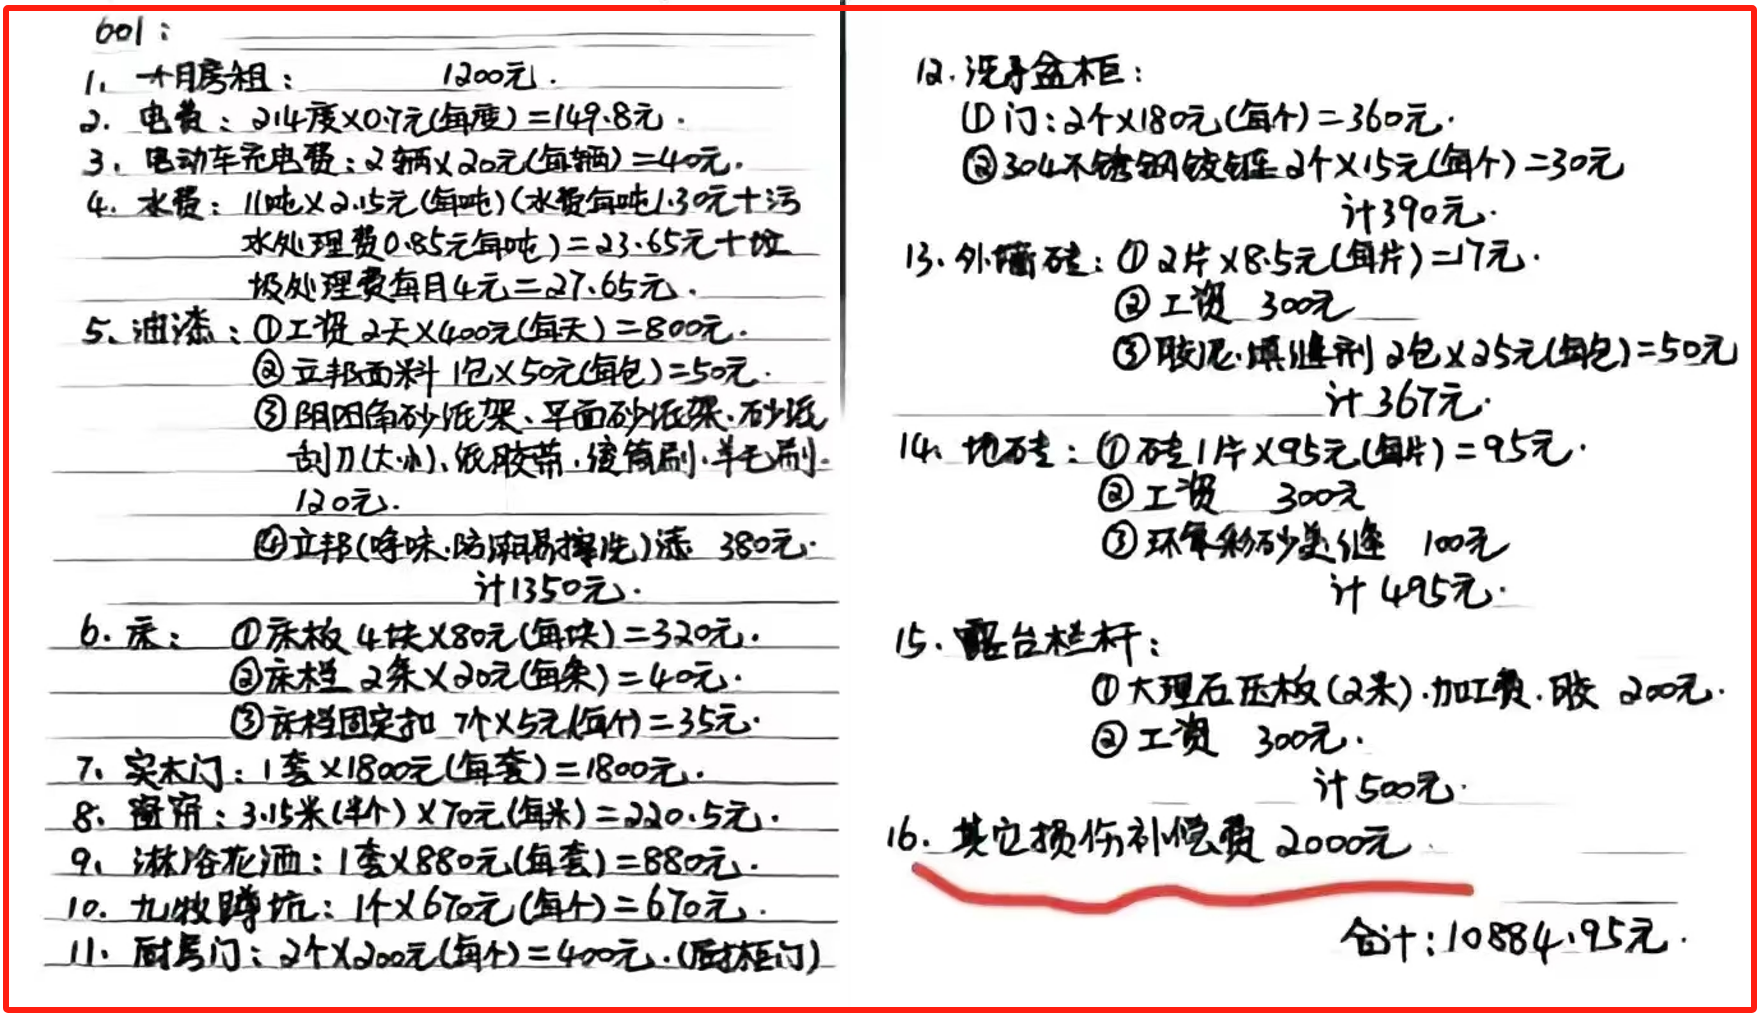 601：
1、一个月房租： 1200元.
2. 电费：214度×0.7元(每度)=149.8元.
3、电动车充电费：2辆×20元(每辆)=40元.
4. 水费：11吨×2.15元(每吨)(水费每吨1.30元+污
水处理费0.85元每吨)=23.65元+垃
圾处理费每月4元=27.65元.
5、油漆：①工资 2天×400元(每天)=800元.
②立邦面料 1包×50元(每包)=50元.
③阴阳角砂纸架、平面砂纸架.砂纸
刮刀(大小)、纸胶带.滚筒刷.羊毛刷.
120元.
④立邦(净味.防潮易擦洗)漆 380元.
计1350元.
6. 床： ①床板 4块×80元(每块)=320元.
②床档 2条×20元(每条)=40元.
③床档固定扣 7个×5元(每个)=35元.
7、实木门：1套×1800元(每套)=1800元.
8、窗帘：3.15米(半个)×70元(每米)=220.5元.
9、淋浴花洒：1套×880元(每套)=880元.
10. 九牧蹲坑：1个×670元(每个)=670元.
11. 厨房门：2个×200元(每个)=400元.(厨柜门)
12. 洗手盆柜：
①门：2个×180元(每个)=360元.
②304不锈钢铰链 2个×15元(每个)=30元
计390元.
13. 外墙砖：①2片×8.5元(每片)=17元.
②工资 300元
③胶泥.填缝剂 2包×25元(每包)=50元
计367元.
14. 地砖：①砖1片×95元(每片)=95元.
②工资 300元
③环氧彩砂美缝 100元
计495元.
15. 露台栏杆：
①大理石压板(2米).加工费.胶 200元.
②工资 300元.
计500元.
16. 其它损伤补偿费 2000元
合计：10884.95元.